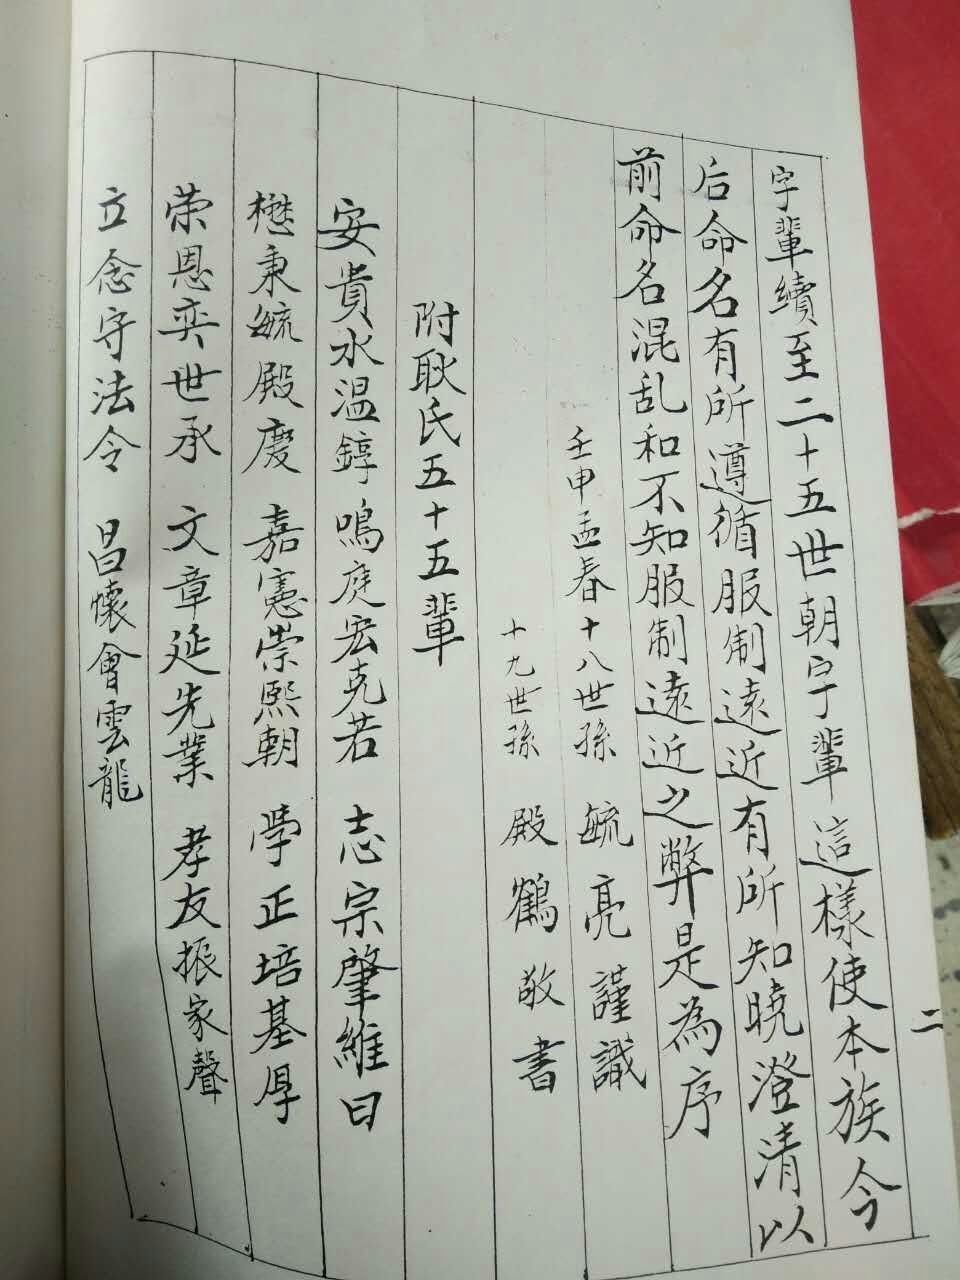 字輩續至二十五世朝字輩這樣使本族今
后命名有所遵循服制遠近有所知曉澄清以
前命名混乱和不知服制遠近之弊是為序
壬申孟春十八世孫 毓亮謹識
十九世孫 殿鶴敬書
附耿氏五十五輩
安貴水温錞鳴庭宏克若 志宗肇維曰
懋秉毓殿慶 嘉憲崇熙朝 學正培基厚
荣恩奕世承 文章延先業 孝友振家聲
立念守法令 昌懷會雲龍
二